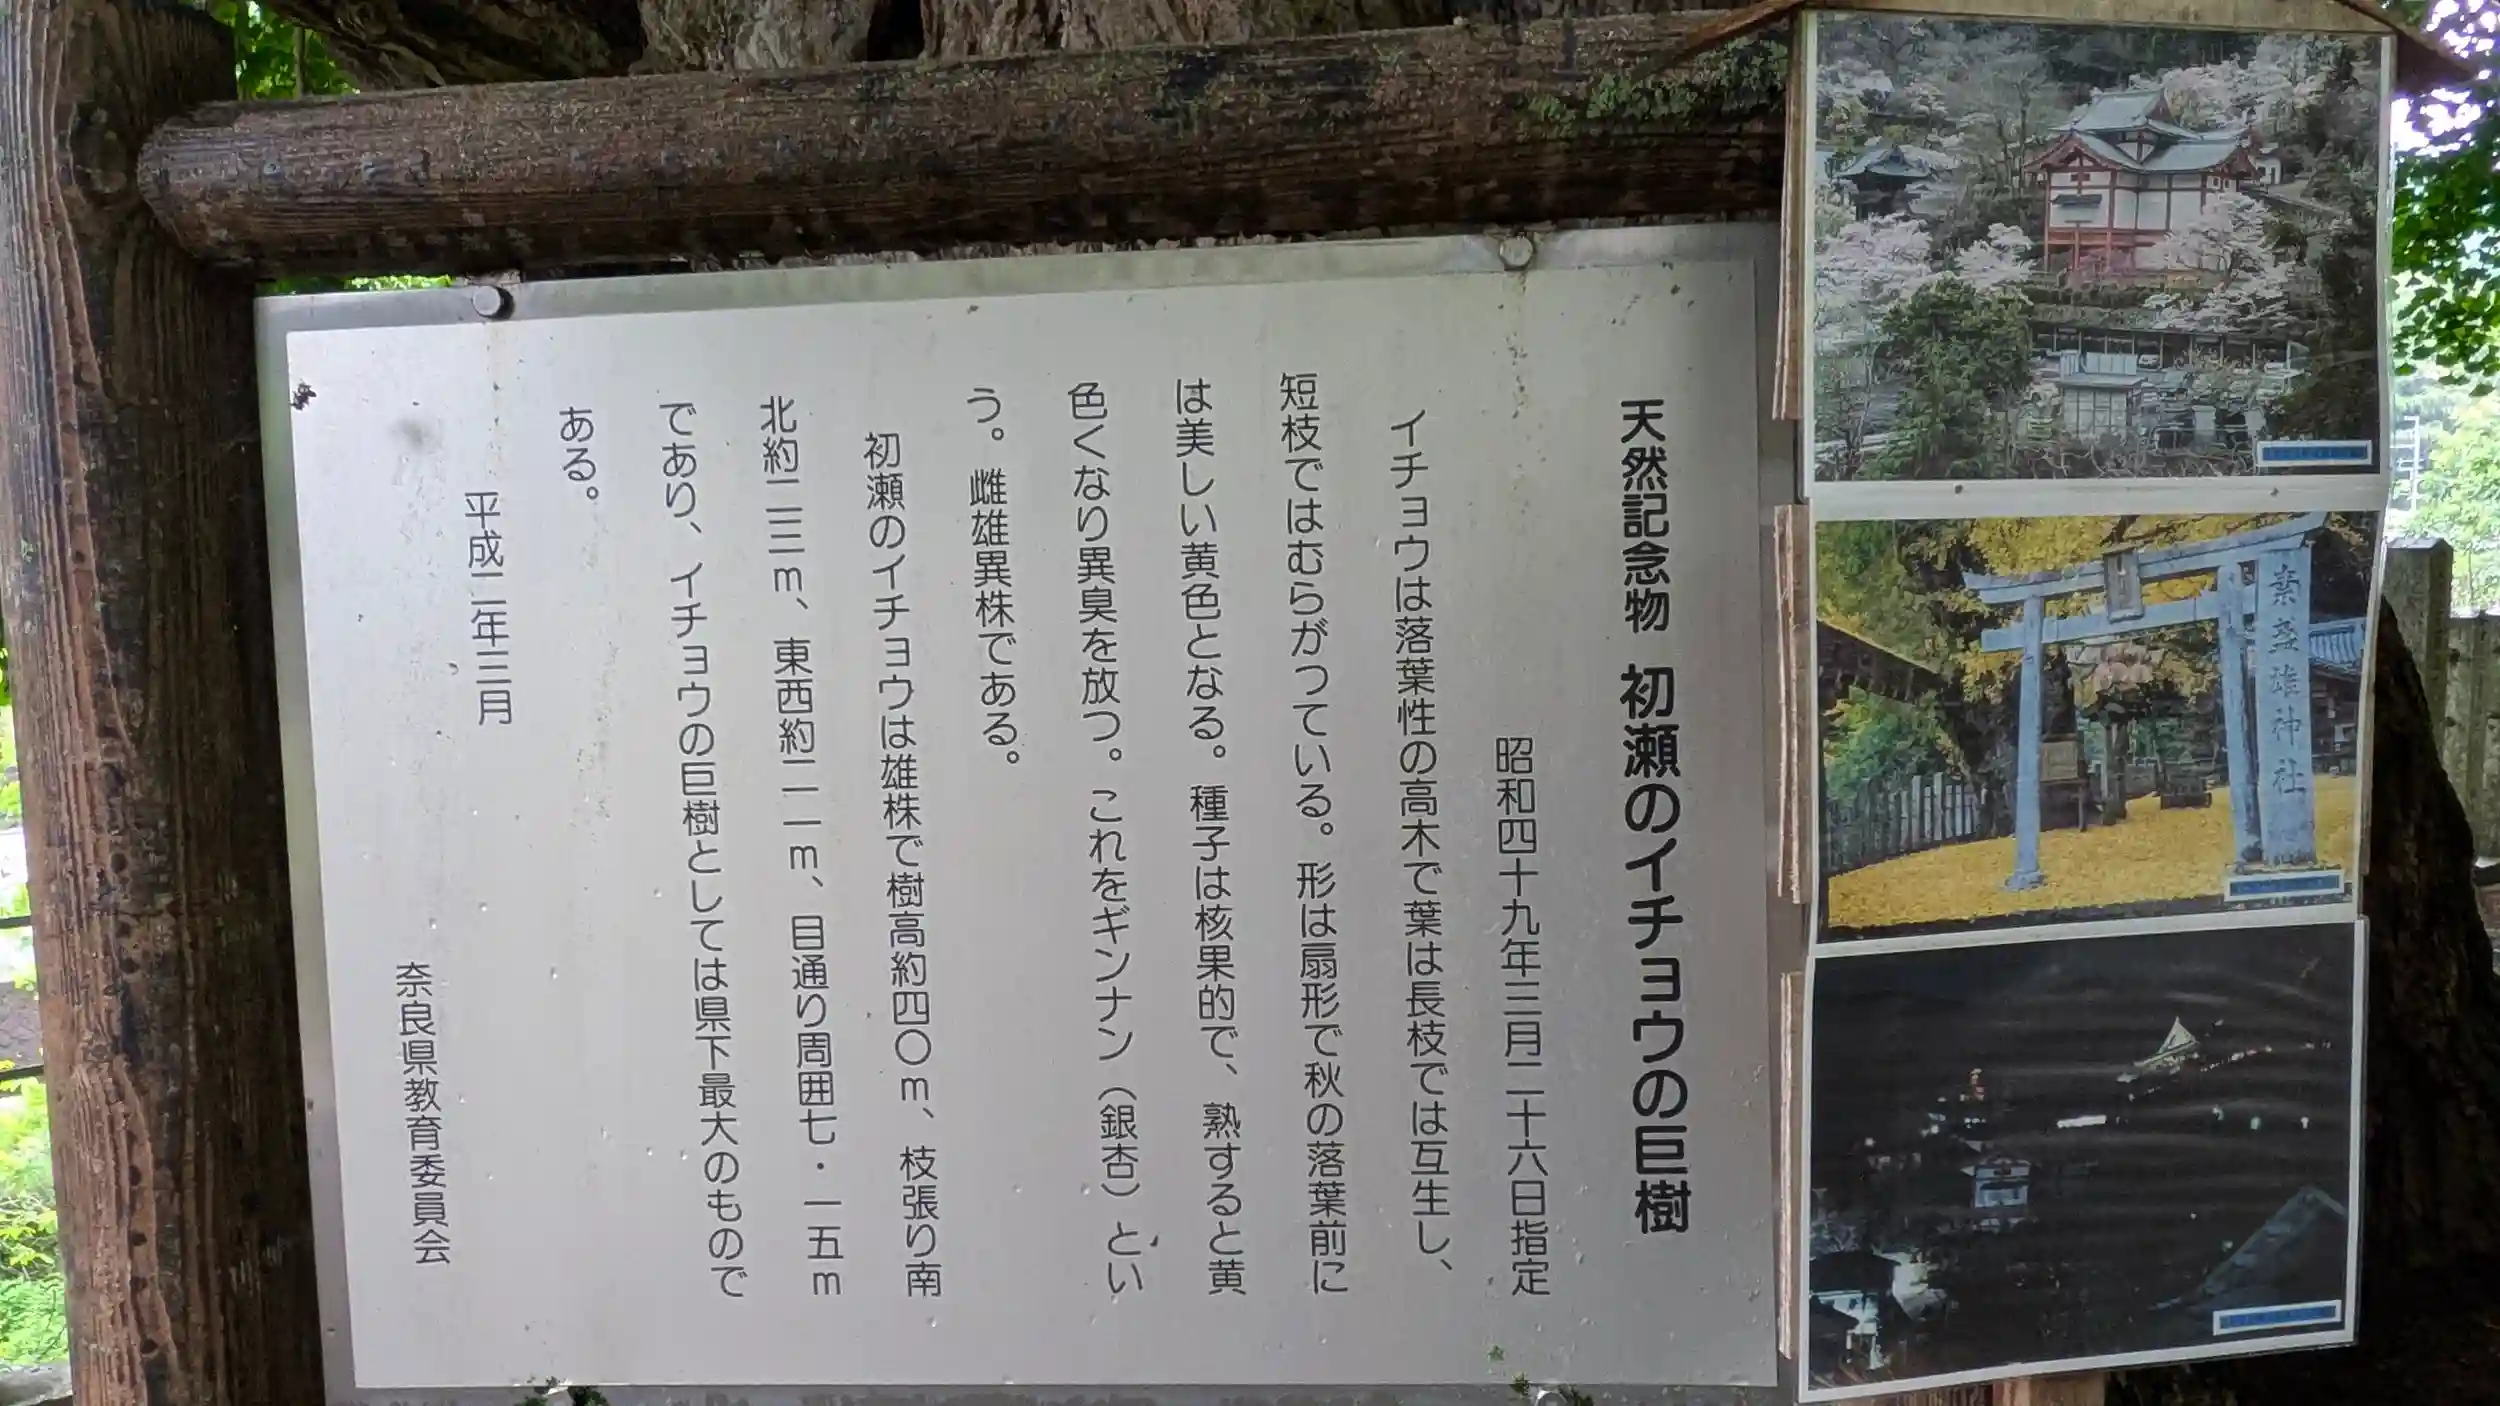 天然記念物 初瀬のイチョウの巨樹
昭和四十九年三月二十六日指定
イチョウは落葉性の高木で葉は長枝では互生し、
短枝ではむらがつている。形は扇形で秋の落葉前に
は美しい黄色となる。種子は核果的で、熟すると黄
色くなり異臭を放つ。これをギンナン（銀杏）とい
う。雌雄異株である。
初瀬のイチョウは雄株で樹高約四〇m、枝張り南
北約二三m、東西約二一m、目通り周囲七・一五m
であり、イチョウの巨樹としては県下最大のもので
ある。
平成二年三月
奈良県教育委員会
素盞雄神社